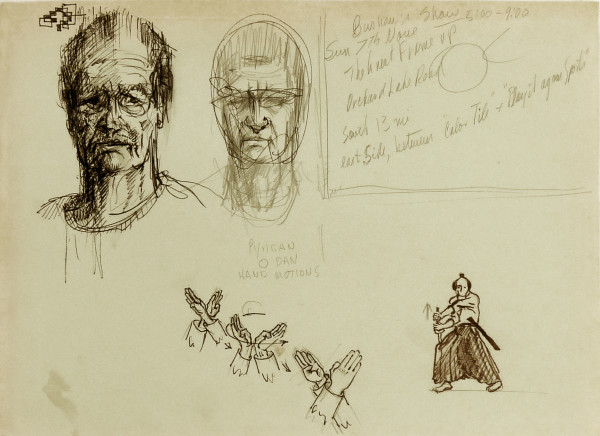 Show 5:00-9:00
Sun 7th
The Great Frame up
Orchard Lake Road
South 13 mi
east side, between "Color Tile" & "Play it again Sports"
O DAN
HAND MOTIONS